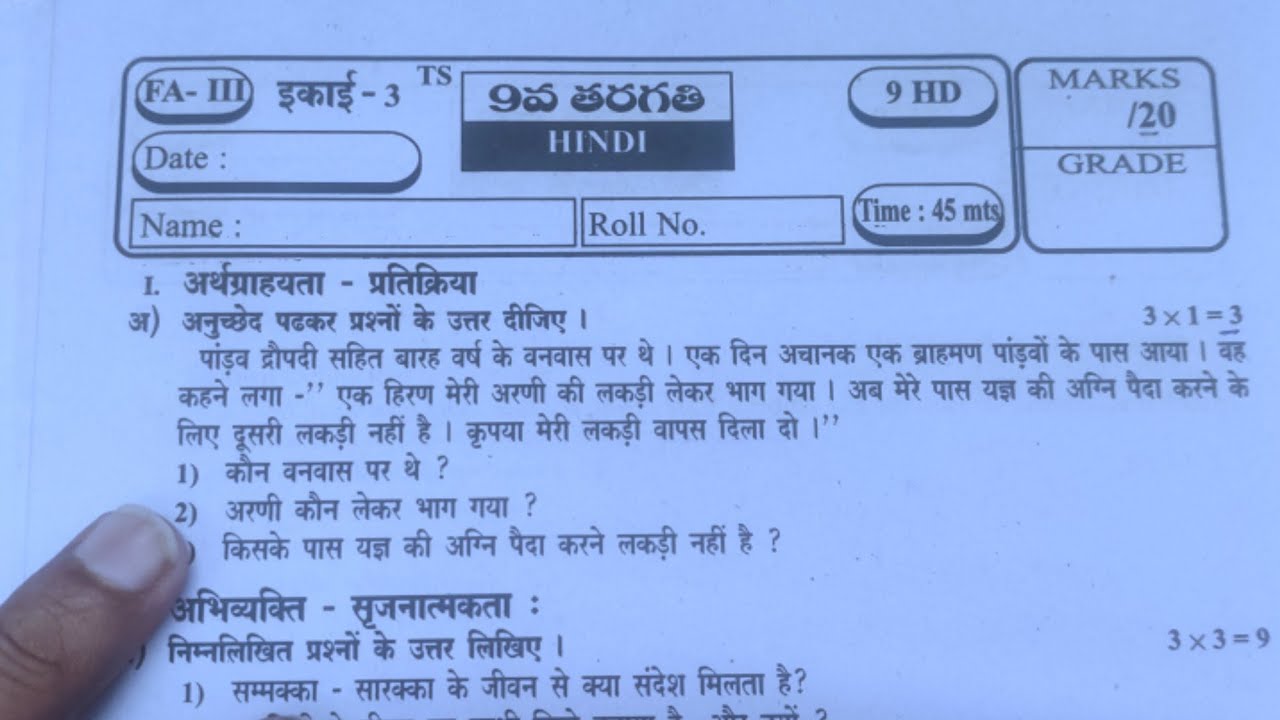 FA- III इकाई - 3 TS 9వ తరగతి 9 HD MARKS
/20
HINDI
Date :
GRADE
Name : Roll No. Time : 45 mts
I. अर्थग्राहयता - प्रतिक्रिया
अ) अनुच्छेद पढकर प्रश्नों के उत्तर दीजिए । 3 × 1 = 3
पांड़व द्रौपदी सहित बारह वर्ष के वनवास पर थे । एक दिन अचानक एक ब्राहमण पांड़वों के पास आया । वह
कहने लगा -’’ एक हिरण मेरी अरणी की लकड़ी लेकर भाग गया । अब मेरे पास यज्ञ की अग्नि पैदा करने के
लिए दूसरी लकड़ी नहीं है । कृपया मेरी लकड़ी वापस दिला दो ।’’
1) कौन वनवास पर थे ?
2) अरणी कौन लेकर भाग गया ?
) किसके पास यज्ञ की अग्नि पैदा करने लकड़ी नहीं है ?
अभिव्यक्ति - सृजनात्मकता :
) निम्नलिखित प्रश्नों के उत्तर लिखिए । 3 × 3 = 9
1) सम्मक्का - सारक्का के जीवन से क्या संदेश मिलता है?